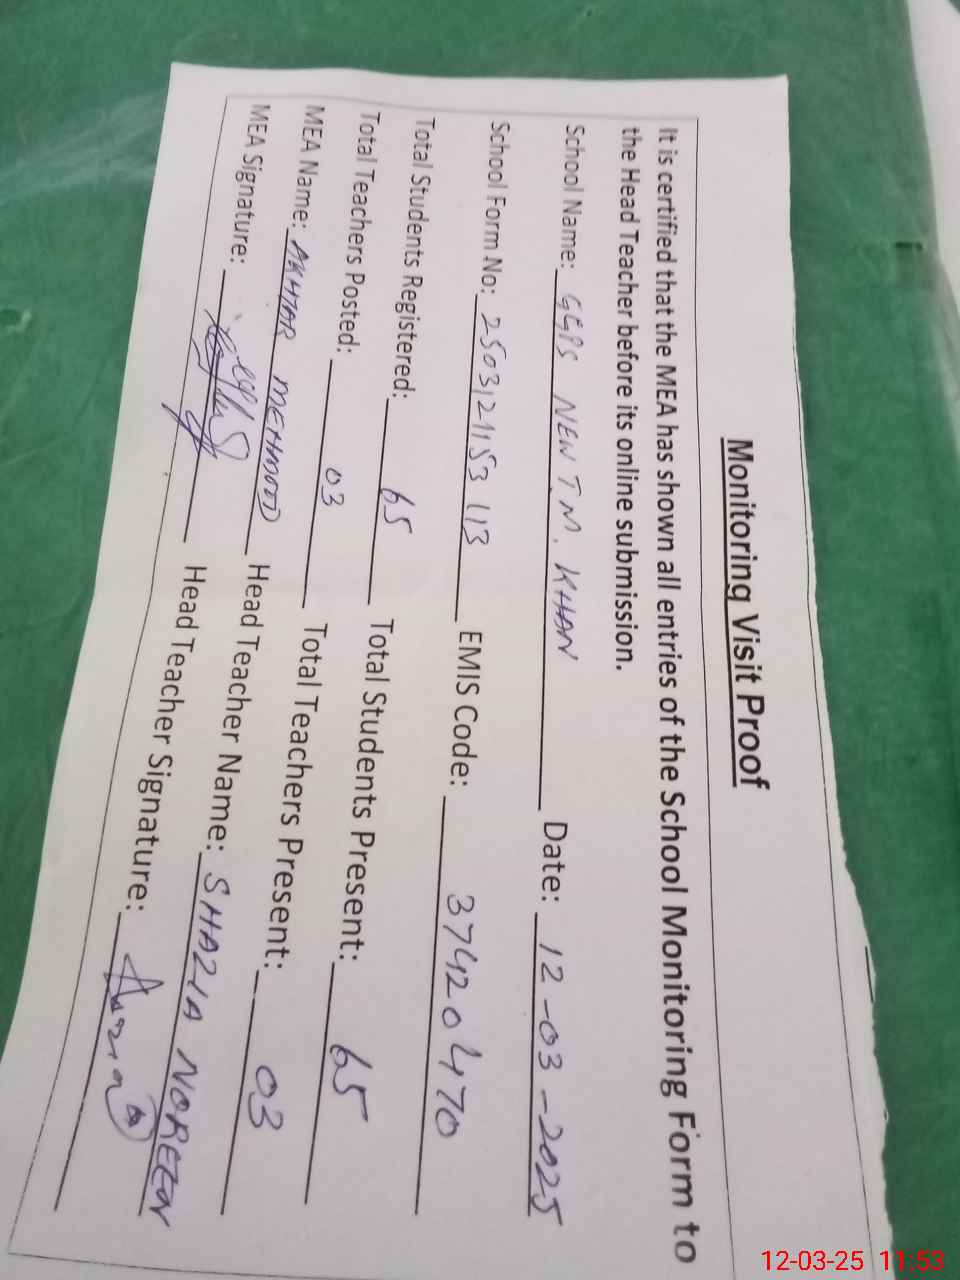 Monitoring Visit Proof
It is certified that the MEA has shown all entries of the School Monitoring Form to
the Head Teacher before its online submission.
School Name: GGPS NEW T.M. KHAN Date: 12-03-2025
School Form No: 2503121153113 EMIS Code: 37420470
Total Students Registered: 65 Total Students Present: 65
Total Teachers Posted: 03 Total Teachers Present: 03
MEA Name: AKHTAR MEHMOOD Head Teacher Name: SHAZIA NOREEN
MEA Signature: Head Teacher Signature:
12-03-25 11:53